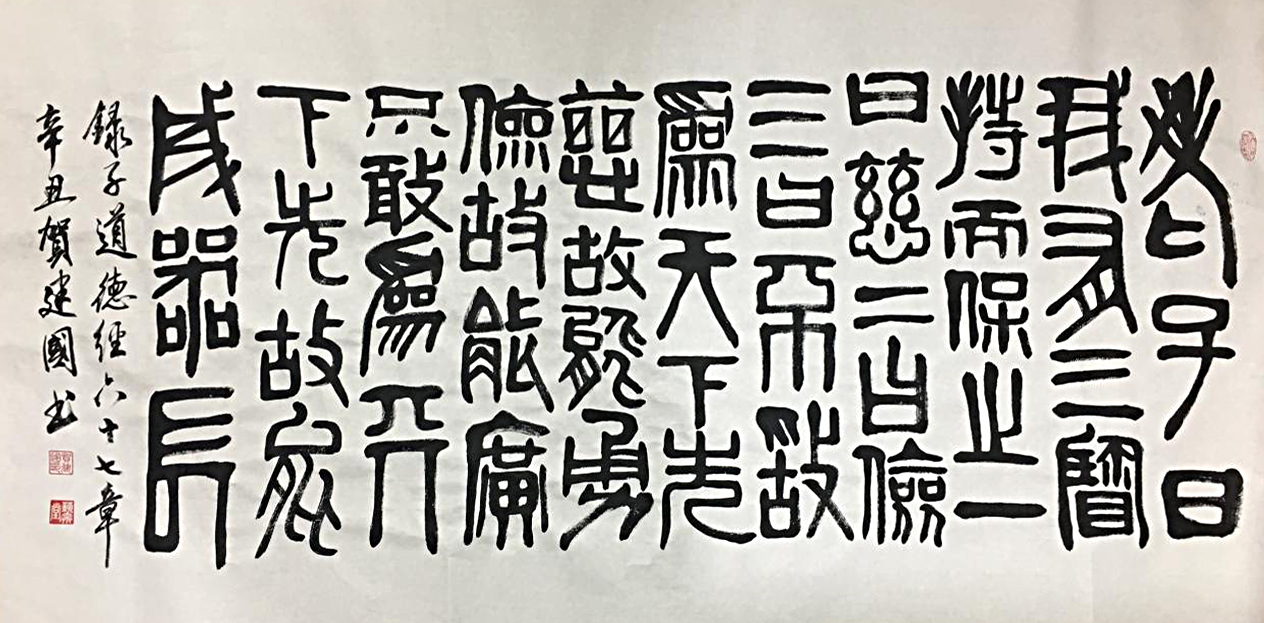 老子曰
我有三寶
持而保之一
曰慈二曰儉
三曰不敢
為天下先
慈故能勇
儉故能廣
不敢為天
下先故能
成器長
錄子道德經六十七章
辛丑賀建國书